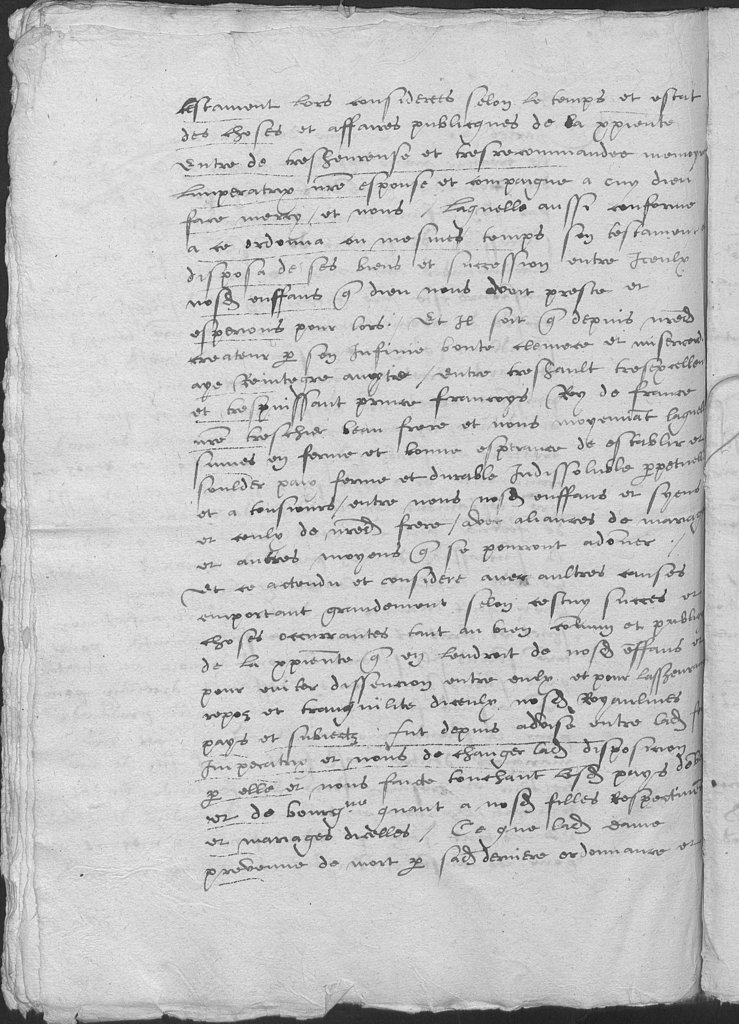 testament lors considerees selon le temps et estat
des choses et affaires publicques de la xpiente
Entre de tresheureuse et tresrecommandee memoyre
Limperatrix nre espouse et compaigne a cuy dieu
face mercy / et nous / Laquelle aussi conforme
a ce ordonna en mesmes temps son testament
disposa de ses biens et succession entre Iceulx
nosd enffans q dieu nous avoit preste et
esperions pour lors / Et Il soit q depuis nred
createur p son Infinie bonte clemece et misericord
aye Reintegre amytie / entre treshault tresexcellen
et trespuissant prince Francoys Roy de france
nre treschier beau frere et nous moyennat laquelle
sumes en ferme et bonne esperance de establir et
soulder paix ferme et durable Indissoluble ppetuelle
et a tousiours / entre nous nosd enffans et syens
et ceulx de nred frere / avec aliances de mariage
et aultres moyens q se pourront adoner /
Et ce actendu et considere avec aultres causes
emportant grandement selon cestuy succes et
choses occurrantes tant au bien comun et public
de la xpiente q en lendroit de nosd effans et
pour eviter dissencion entre eulx et pour lasseurance
repoz et tranquilite diceulx nosd Royaulmes
pays et subiectz fut depuis advise entre lad
Imperatrix et nous de changer lad disposicion
p elle et nous faicte touchant lesd pays de
et de bourgne quant a nosd filles Respectivemt
et mariages dicelles / Ce que lad dame
prevenue de mort p sad derniere ordonnance et